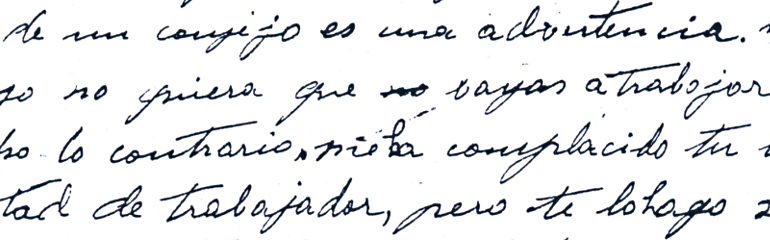 de un consijo es una advertencia.
yo no quiera que no vayas a trabajar
lo contrario, complacido tu
tad de trabajador, pero te lo hago